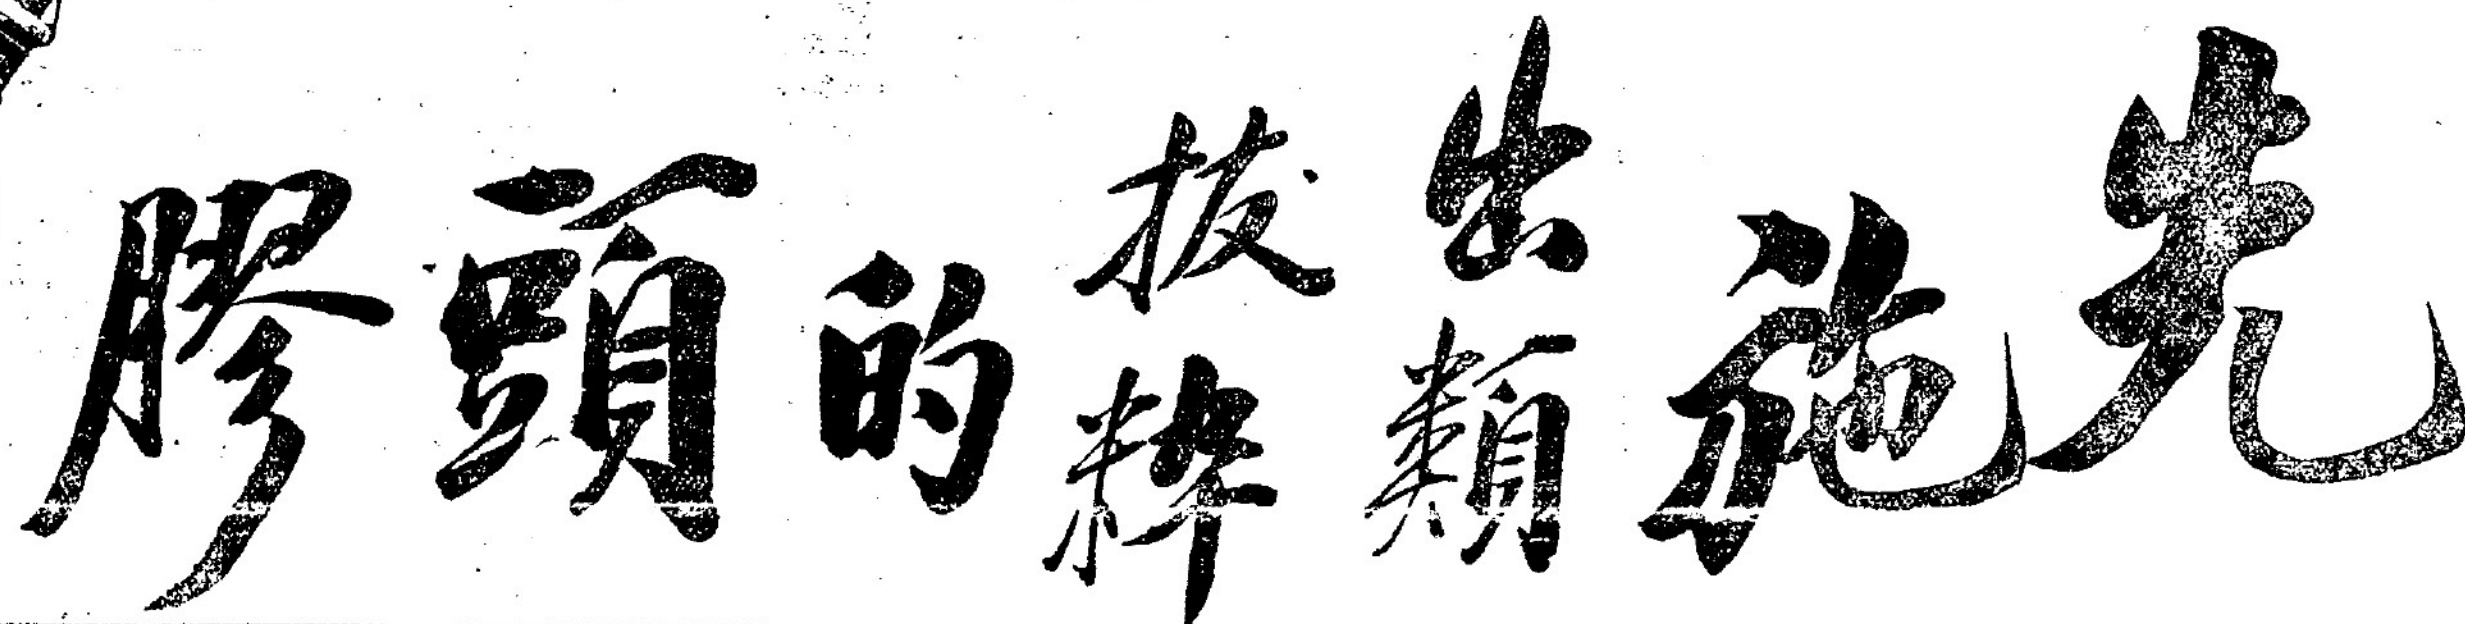 先施出類拔粹的頭膠